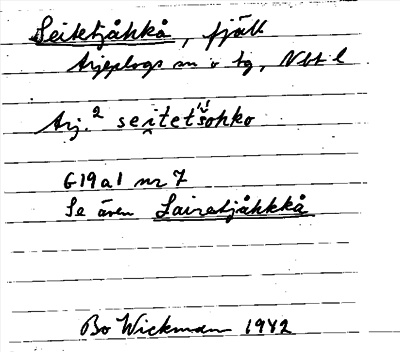 Seitetjåhkå, fjäll
Arjeplogs sn o tg, Nbt l
Arj.² sei̭tet'šohko
G19a1 nr 7
Se även Sairatjåhkkå
Bo Wickman 1942